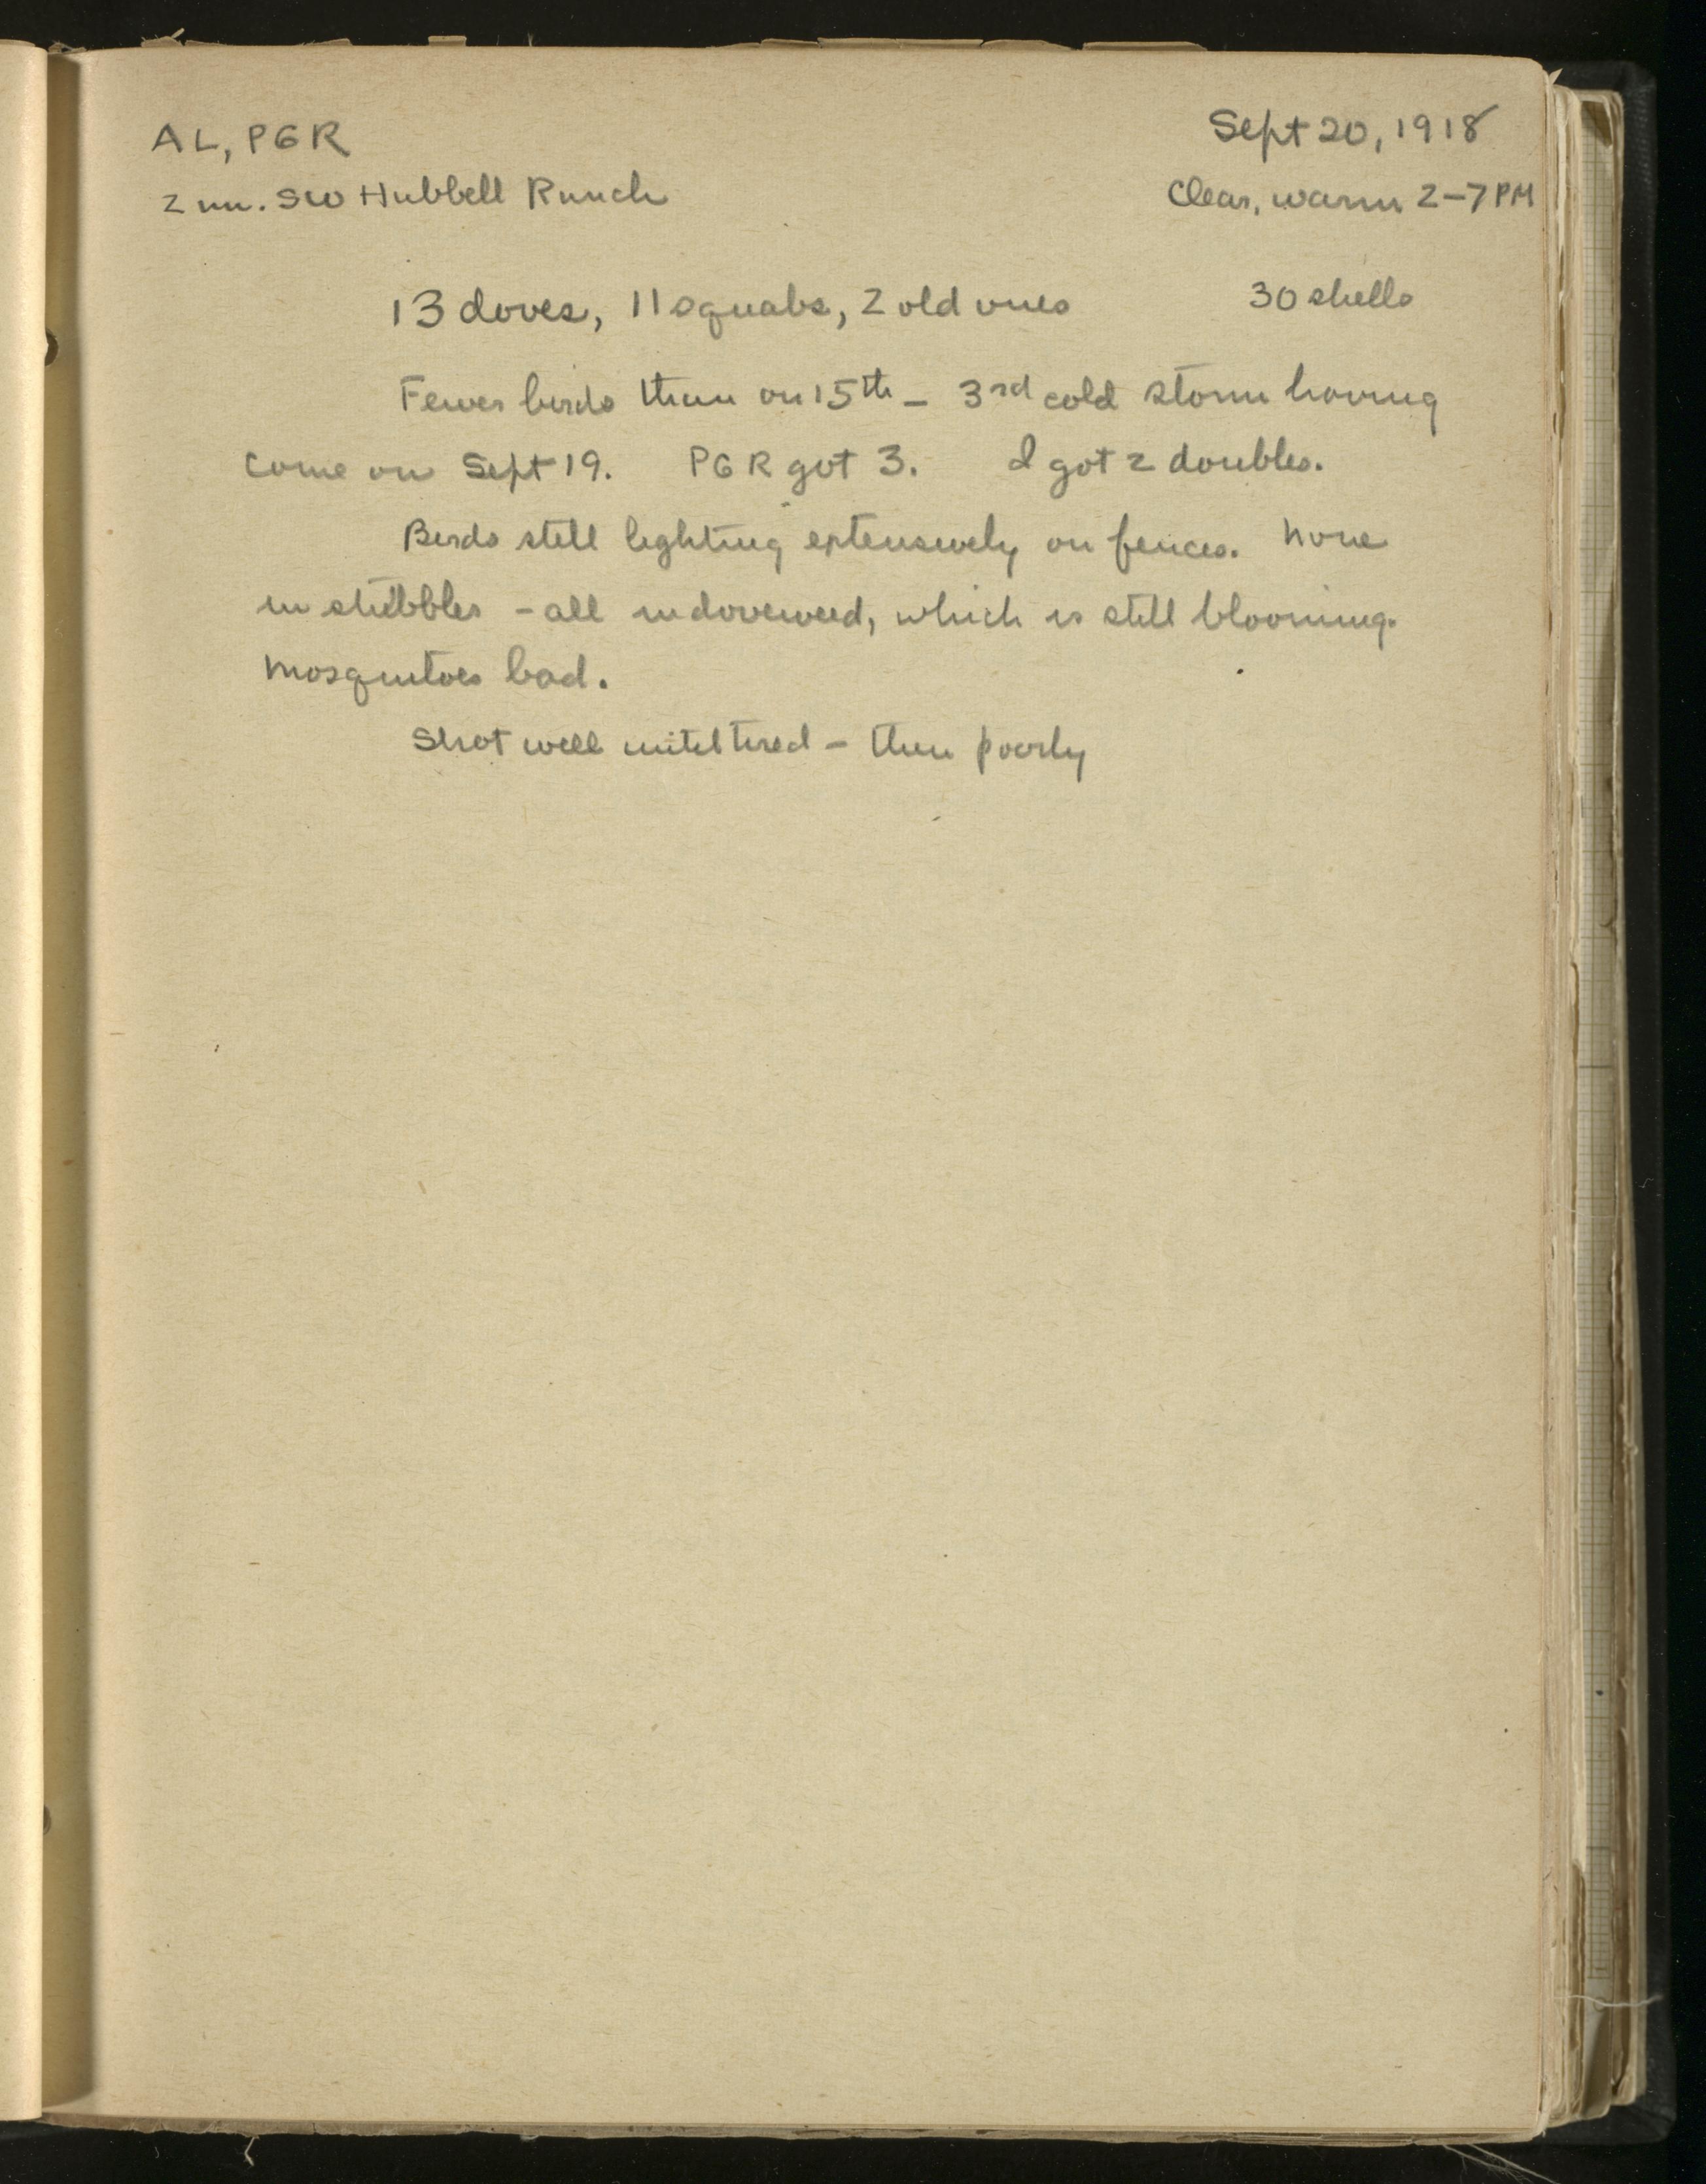 AL, PGR
Sept 20, 1918
2 mi. SW Hubbell Ranch
Clear, warm 2-7 PM
13 doves, 11 squabs, 2 old ones
30 shells
Fewer birds than on 15th - 3rd cold storm having
come on Sept 19. PGR got 3. I got 2 doubles.
Birds still lighting extensively on fences. None
in stubbles - all in doveweed, which is still blooming.
Mosquitoes bad.
Shot well until tired - then poorly